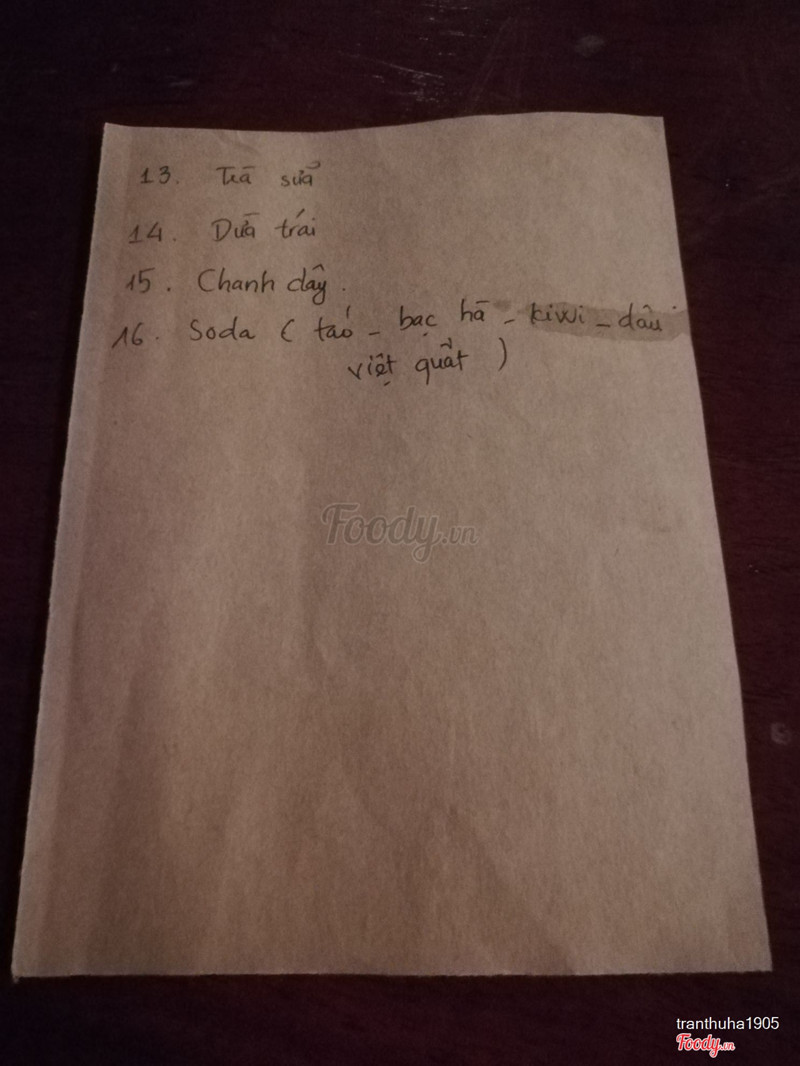 13. Trà sữa
14. Dừa trái
15. Chanh dây.
16. Soda ( táo - bạc hà - kiwi - dâu
việt quất )
Foody.vn
tranthuha1905
Foody.vn